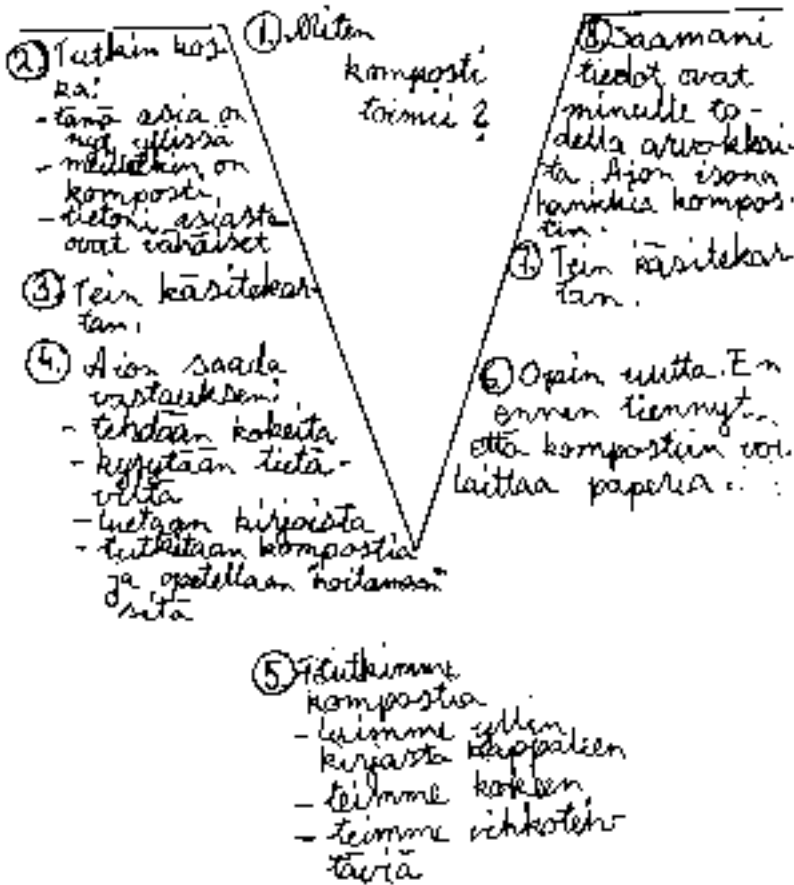 1. Miten
komposti
toimii?
2. Tutkin kos-
ka:
- tämä asia on
nyt yllissä
- meilläkin on
komposti
- tietoni asiasta
ovat vähäiset
3. Tein käsitekar-
tan.
4. Aion saada
vastaukseni
- tehdään kokeita
- kysytään tietä-
viltä
- luetaan kirjoista
- tutkitaan kompostia
ja opetellaan "hoitamaan"
sitä
5. Tutkimme
kompostia
- luimme yllin
kirjasta kappaleen
- teimme kokeen
- teimme vihkoteh-
täviä
6. Opin uutta. En
ennen tiennyt...
että kompostiin voi
laittaa paperia...
7. Tein käsitekar-
tan.
8. Saamani
tiedot ovat
minulle to-
della arvokkai-
ta. Aion isona
hankkia kompos-
tin.